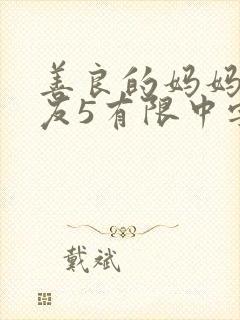 善良的妈妈
友5有限中字
戴斌